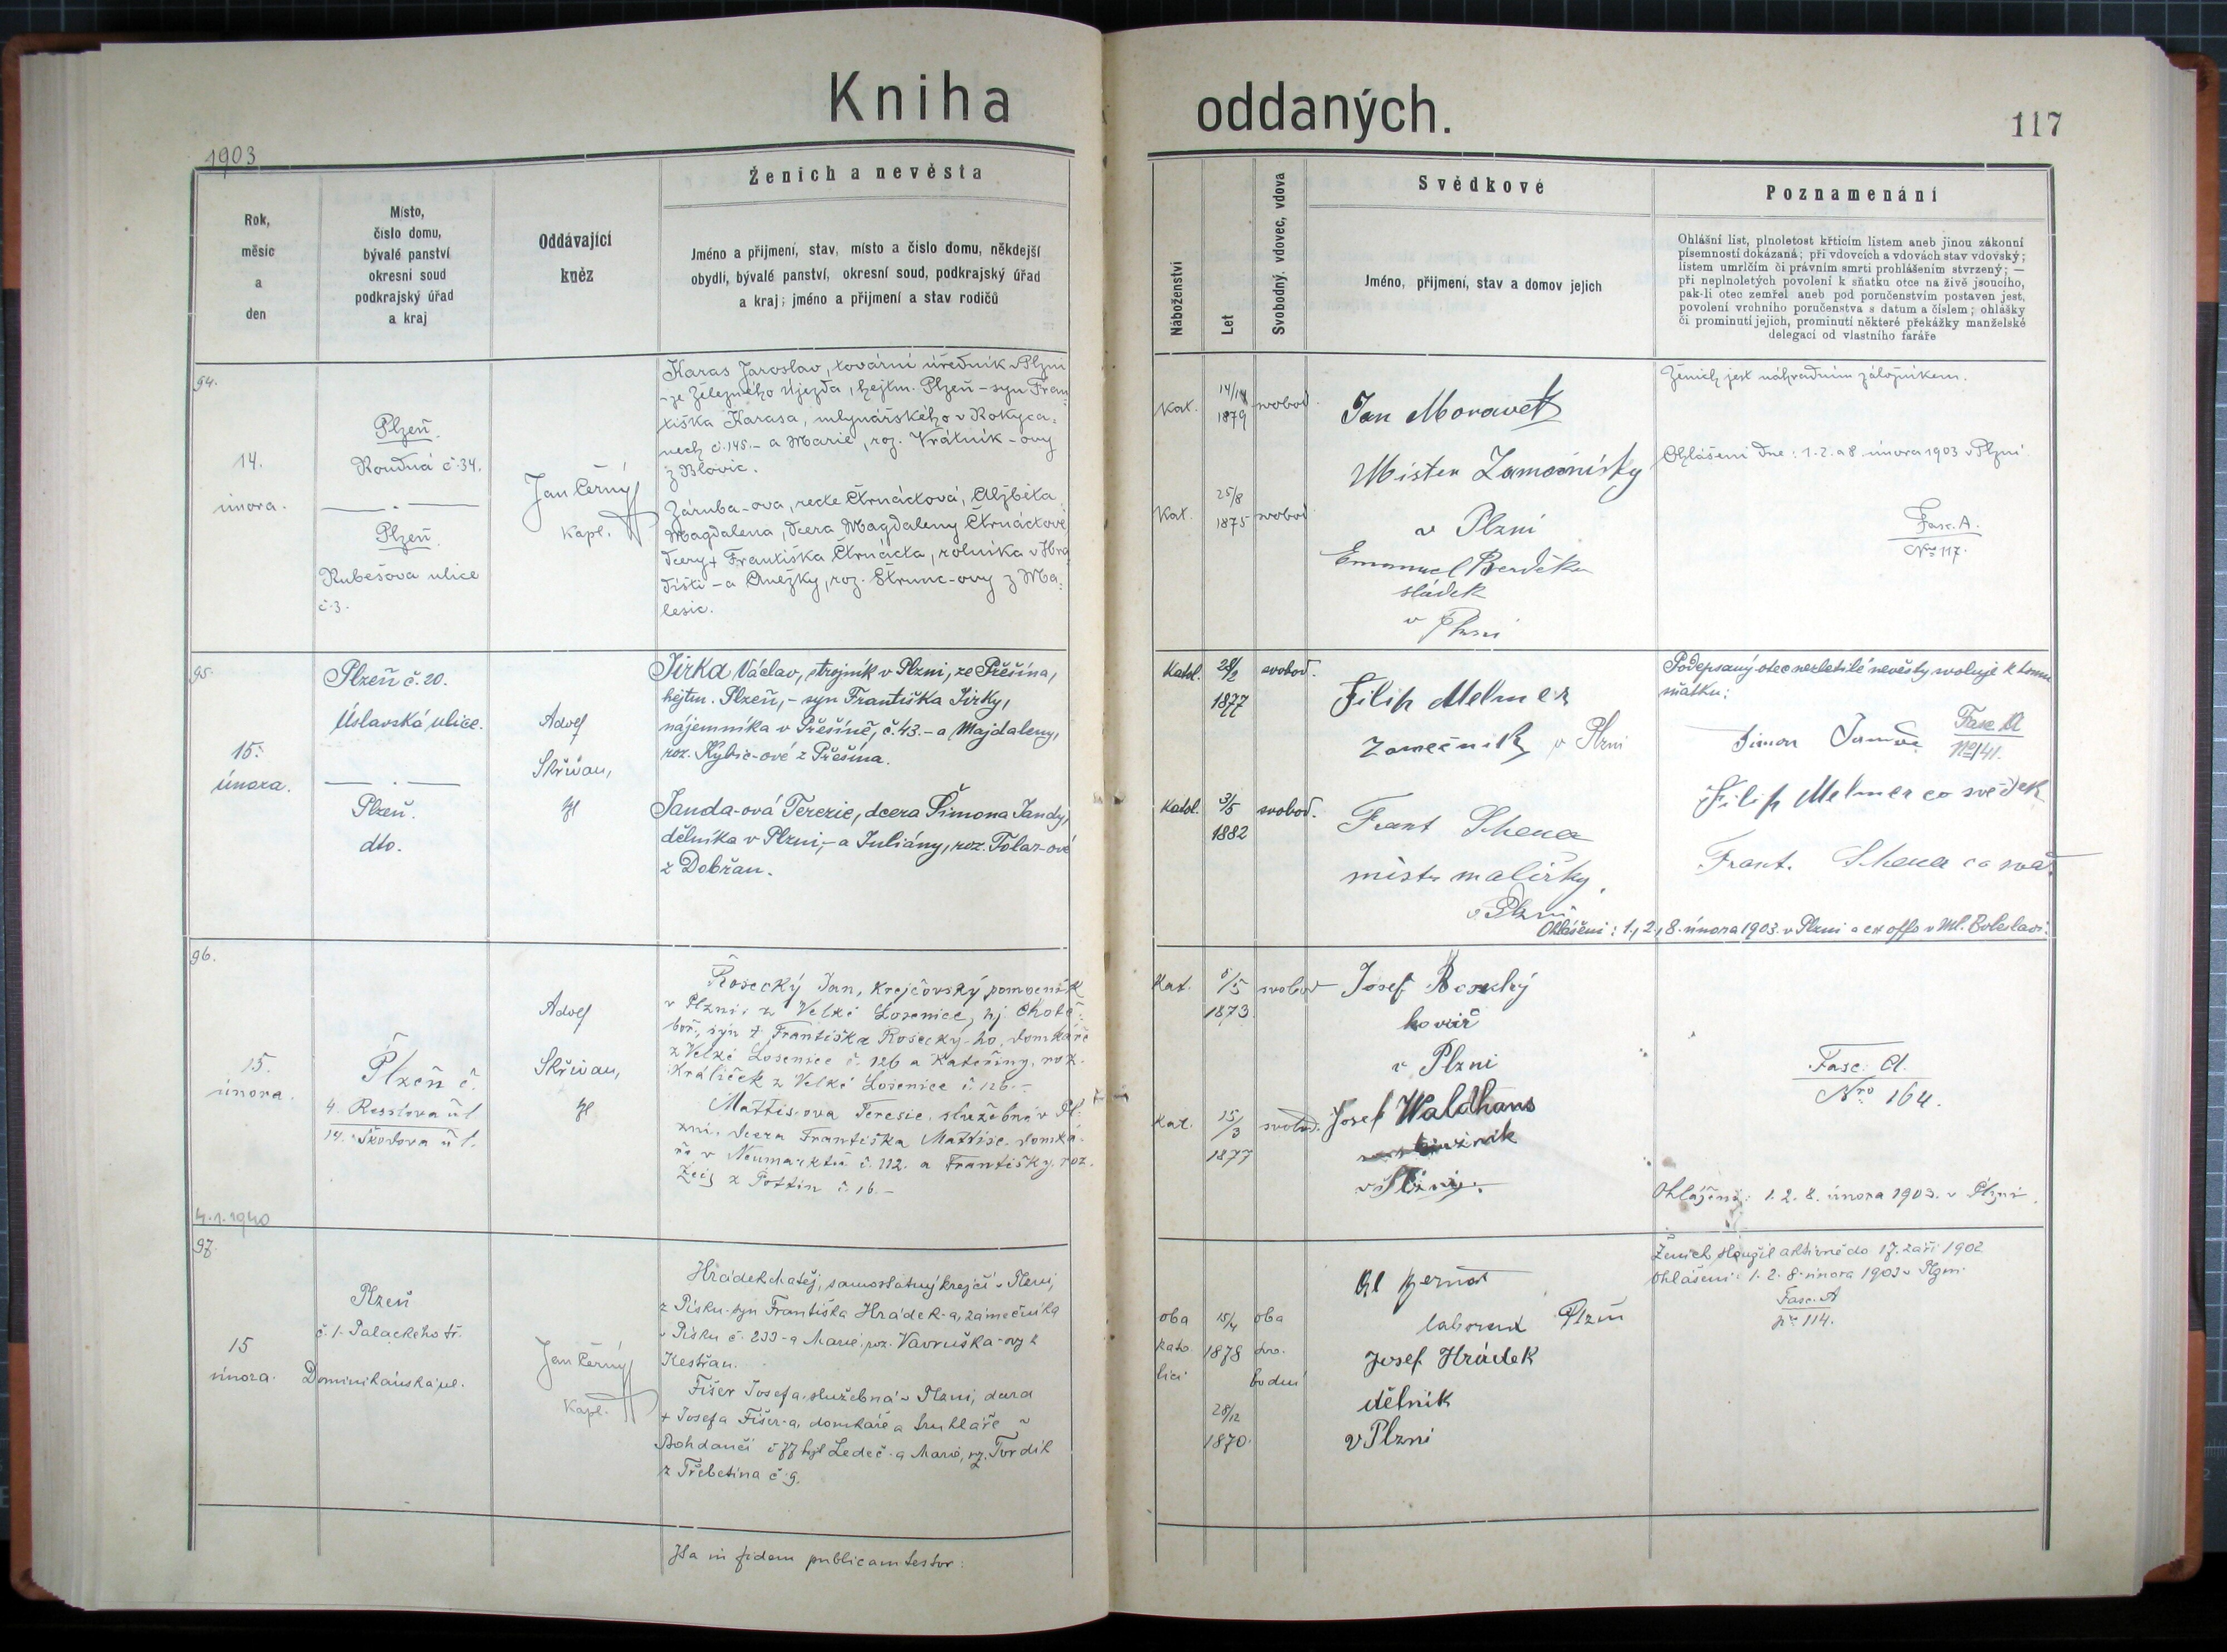 Kniha oddaných.
117
1903
Rok,
měsíc
a
den
Místo,
číslo domu,
bývalé panství
okresní soud
podkrajský úřad
a kraj
Oddávající
kněz
Ženich a nevěsta
Jméno a přijmení, stav, místo a číslo domu, někdejší
obydlí, bývalé panství, okresní soud, podkrajský úřad
a kraj; jméno a přijmení a stav rodičů
Náboženství
Let
Svobodný, vdovec, vdova
Svědkové
Jméno, přijmení, stav a domov jejich
Poznamenání
Ohlášní list, plnoletost křticím listem aneb jinou zákonní
písemností dokázaná; při vdovcích a vdovách stav vdovský;
listem umrlčím či právním smrti prohlášením stvrzený; —
při neplnoletých povolení k sňatku otce na živě jsoucího,
pak-li otec zemřel aneb pod poručenstvím postaven jest,
povolení vrchního poručenstva s datum a číslem; ohlášky
či prominutí jejich, prominutí některé překážky manželské
delegací od vlastního faráře
94.
14.
února.
Plzeň.
Roudná č. 34.
Plzeň.
Rubešova ulice
č. 3.
Jan Černý
kapl.
Karas Jaroslav, tovární úředník v Plzni
- ze Železného Újezda, hejtm. Plzeň - syn Fran-
tiška Karasa, mlynářského v Rokyca-
nech č. 145. - a Marie, roz. Vrátník-ovy
z Blovic.
Záruba-ova, recte Čtrnáctová, Alžběta
Magdalena, dcera Magdaleny Čtrnáctové,
dcery † Františka Čtrnácta, rolníka v Hra-
dišti - a Anežky, roz. Štrunc-ovy z Ma-
lesic.
Kat.
14/14
1879
svobod.
Kat.
25/8
1875
svobod.
Jan Moravetz
Mister Zamočnický
v Plzni
Emanuel
sládek
v Plzni
Ženich jest náhradním záložníkem.
Ohlášeni dne: 1. 2. a 8. února 1903 v Plzni
Fasc. A.
Nro 117.
95.
15.
února.
Plzeň č. 20.
Úslavská ulice.
Plzeň.
dto.
Adolf
Skřivan,
kpl
Jirka Václav, strojník v Plzni, ze Přešína,
hejtm. Plzeň, - syn Františka Jirky,
nájemníka v Přešíně, č. 43. - a Majdaleny,
roz. Kybic-ové z Přešína.
Janda-ová Terezie, dcera Šimona Jandy,
dělníka v Plzni, - a Juliány, roz. Tolar-ové
z Dobřan.
Katol.
28/2
1877
svobod.
Katol.
3/5
1882
svobod.
Filip Melmer
zámečník v Plzni
Frant
mistr malířský,
v Plzni
Podepsaný otec nezletilé nevěsty svoluje k tomu
sňatku:
Simon Janda
Fasc. A
No 141.
Filip Melmer co svědek
Frant. co svěd.
Ohlášeni: 1., 2., 8. února 1903. v Plzni a ex offo v Ml. Boleslavi.
96.
15.
února.
Plzeň č.
4. Resslova ul
14. Škodova ul.
4.1.1940
Adolf
Skřivan,
kpl
Rosecký Jan, krejčovský pomocník
v Plzni, z Velké Losenice, hj Chotě-
boř, syn † Františka Rosecký-ho, domkáře
z Velké Losenice č. 126 a Kateřiny, roz.
Králíček z Velké Losenice č. 126. -
Mattis-ova Teresie, služebná v Pl-
zni, dcera Františka Mattise, domká-
ře v Neumarktu č. 112. a Františky, roz.
Zeis z Pottin č. 16. -
Kat.
6/5
1873
svobod
Kat.
15/3
1877
svobod.
Josef Rosecký
kovář
v Plzni
Josef Waldhans
v Plzni.
Fasc. A.
Nro 164.
Ohlášeni: 1. 2. 8. února 1903. v Plzni.
97.
15
února.
Plzeň
č. 1. Palackeho tř.
Dominikánská ul.
Jan Černý
kapl.
Hrádek Matěj, samostatný krejčí v Plzni,
z Písku - syn Františka Hrádek-a, zámečníka
v Písku č. 233 - a Marie, roz. Vavruška-ovy z
Kestřan.
Fišer Josefa, služebná v Plzni, dcera
† Josefa Fišer-a, domkáře a truhláře v
Bohdanči č 77 hejt Ledeč - a Marie, rz. Tvrdík
z Třebetína č. 9.
oba
kato
líci
15/4
1878
28/12
1870.
oba
svo-
bodní
laborant Plzeň
Josef Hrádek
dělník
v Plzni
Ženich sloužil aktivně do 17. září 1902
Ohlášeni: 1. 2. 8. února 1903 v Plzni
Fasc. A
No 114.
Ita in fidem publicam testor: